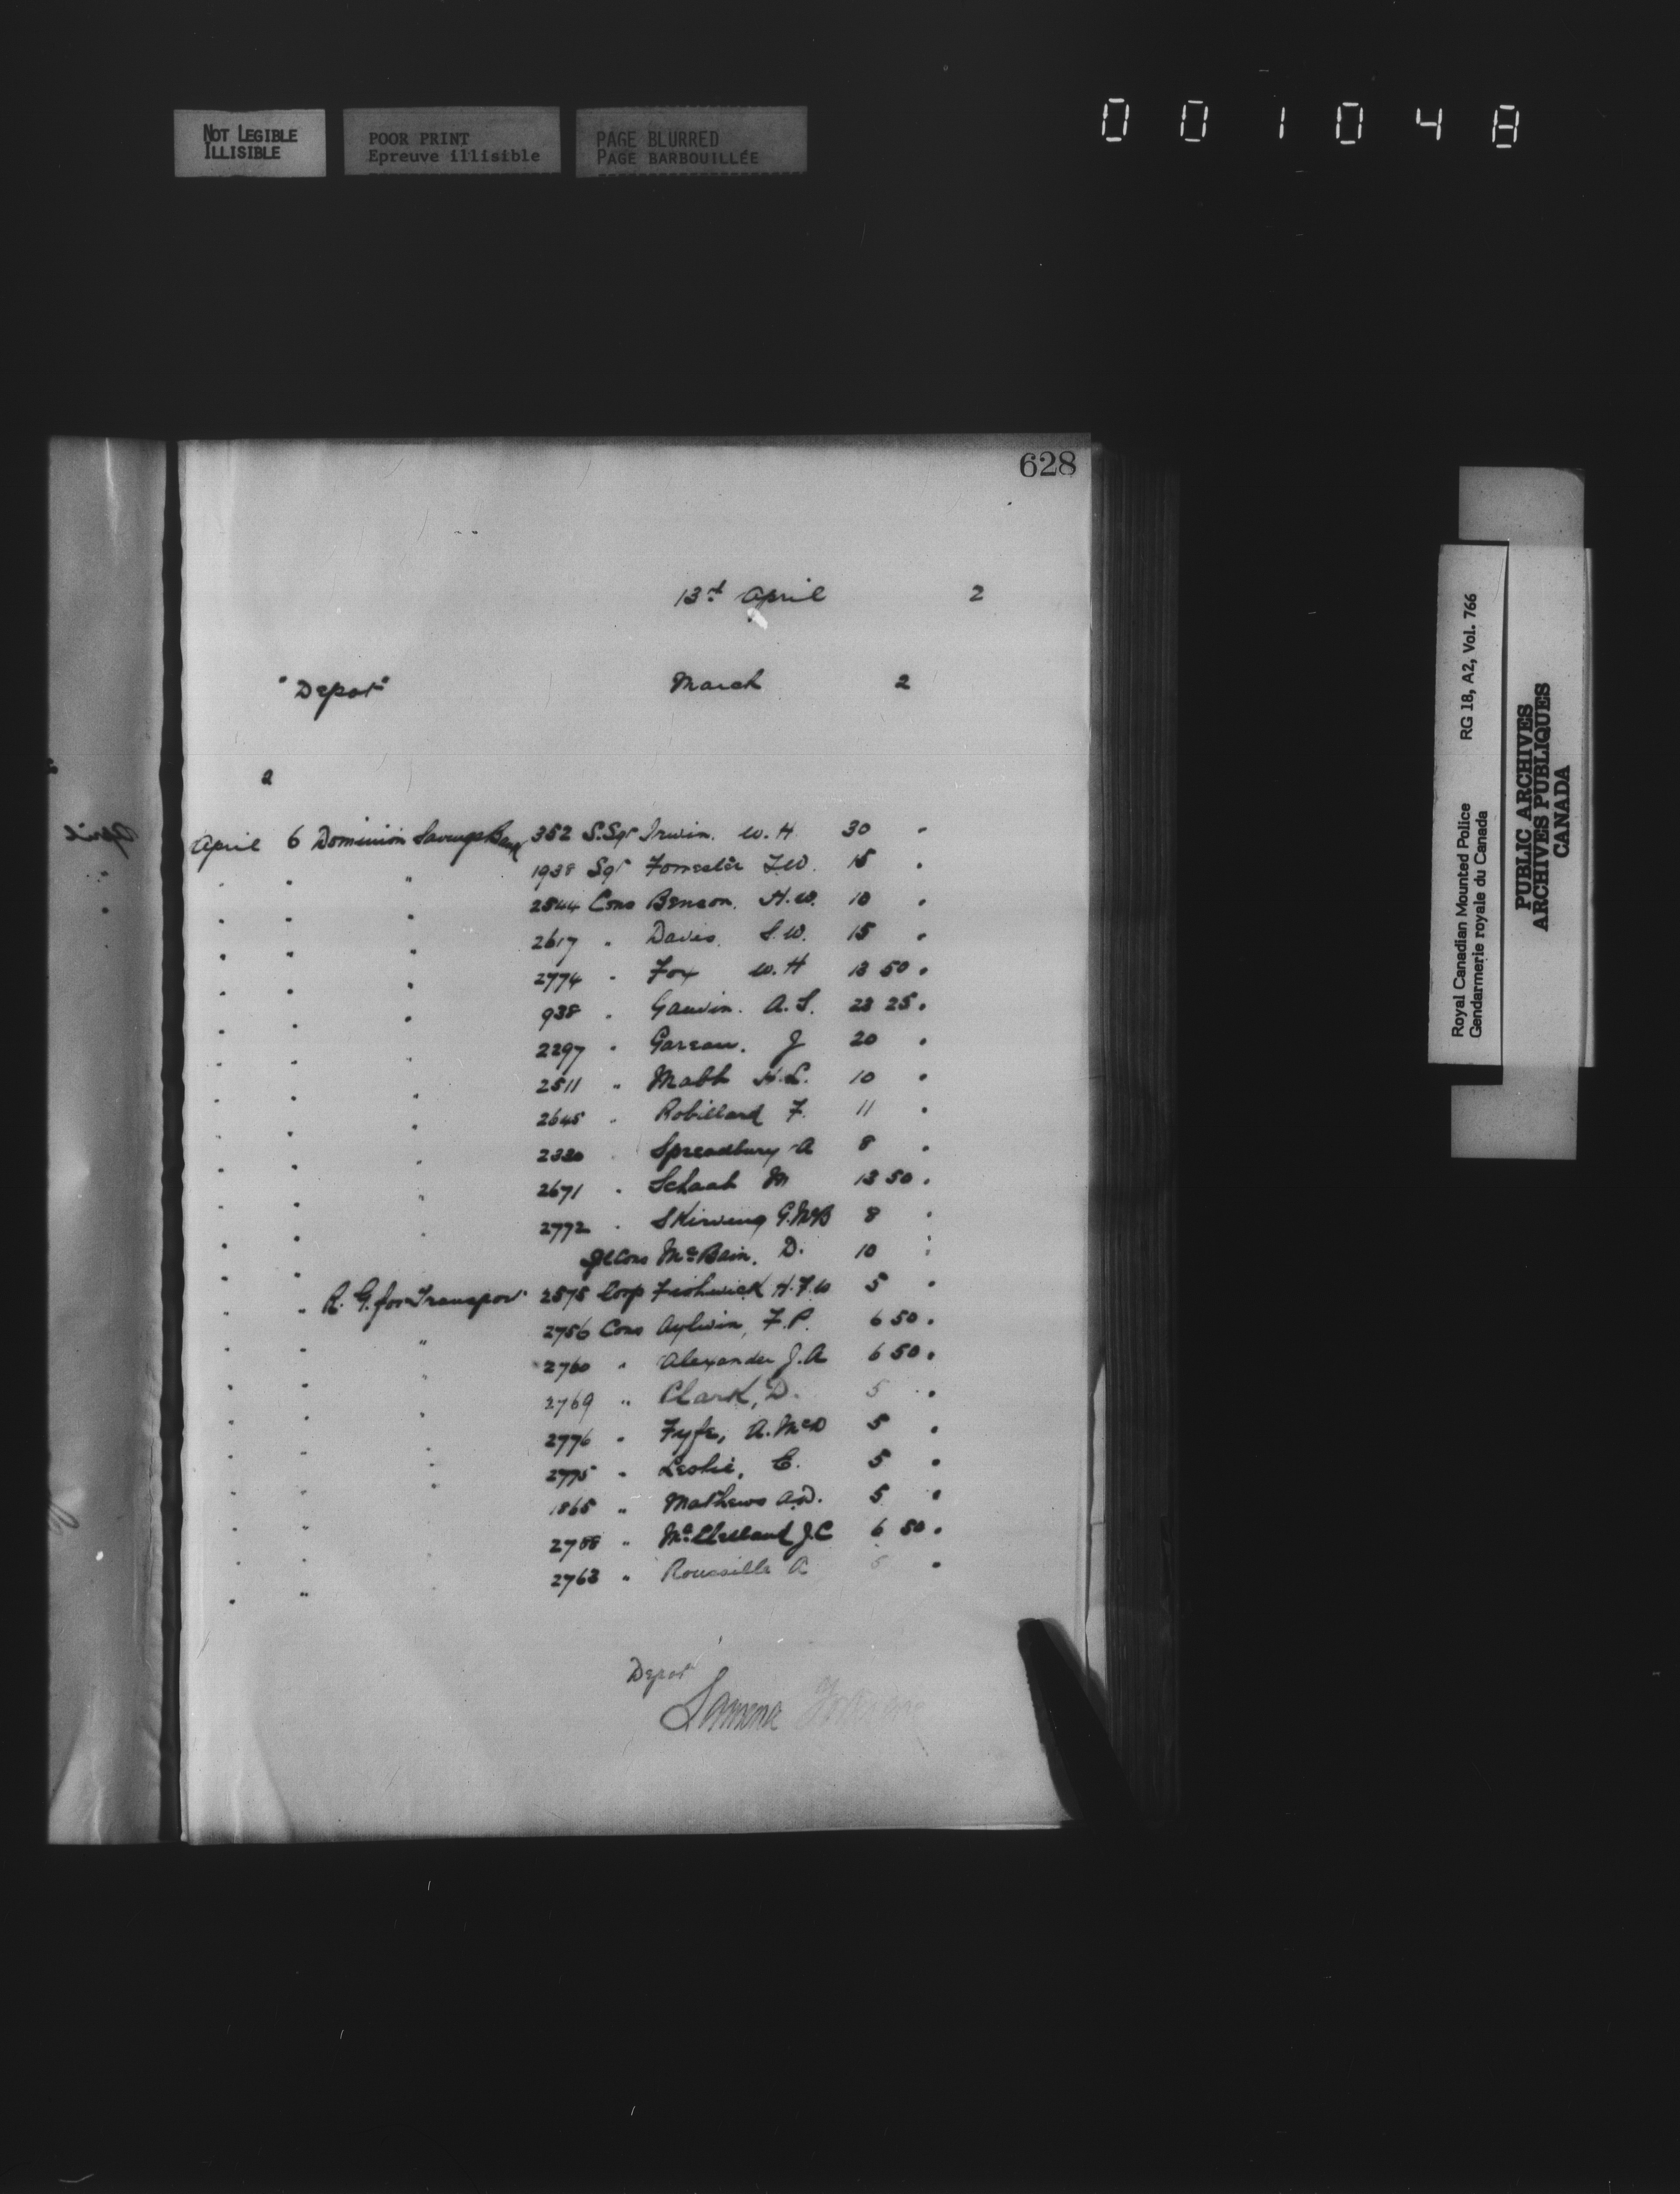 NOT LEGIBLE
ILLISIBLE
POOR PRINT
Epreuve illisible
PAGE BLURRED
PAGE BARBOUILLÉE
001048
628
13th April 2
"Depot" March 2
2
April 6 Dominion Savings Bank 352 S.Sgt Irwin. W.H 30 "
" " " 1938 Sgt Forrester T.W. 15 "
" " " 2544 Cons Benson. H.W. 10 "
" " " 2617 " Davis. S.W. 15 "
" " " 2774 " Fox W.H 13 50 "
" " " 938 " Gauvin. A.S. 23 25 "
" " " 2297 " Gareau. J 20 "
" " " 2511 " Mabb H.L. 10 "
" " " 2645 " Robillard F. 11 "
" " " 2330 " Spreadbury A 8 "
" " " 2671 " Schaab M 13 50 "
" " " 2772 " Skirving G.McB 8 "
" " Cons McBain. D. 10 "
" " R. G. for Transport 2575 Corp Fishwick H.F.W 5 "
" " " 2756 Cons Aylwin, F.P. 6 50 "
" " " 2760 " Alexander J.A 6 50 "
" " " 2769 " Clark, D. 5 "
" " " 2776 " Fyfe, A.McD 5 "
" " " 2775 " Leslie, E. 5 "
" " " 1865 " Mathews A.D. 5 "
" " " 2788 " McClelland J.C 6 50 "
" " " 2763 " Roussille A 5 "
Depot
Royal Canadian Mounted Police RG 18, A2, Vol. 766
Gendarmerie royale du Canada
PUBLIC ARCHIVES
ARCHIVES PUBLIQUES
CANADA